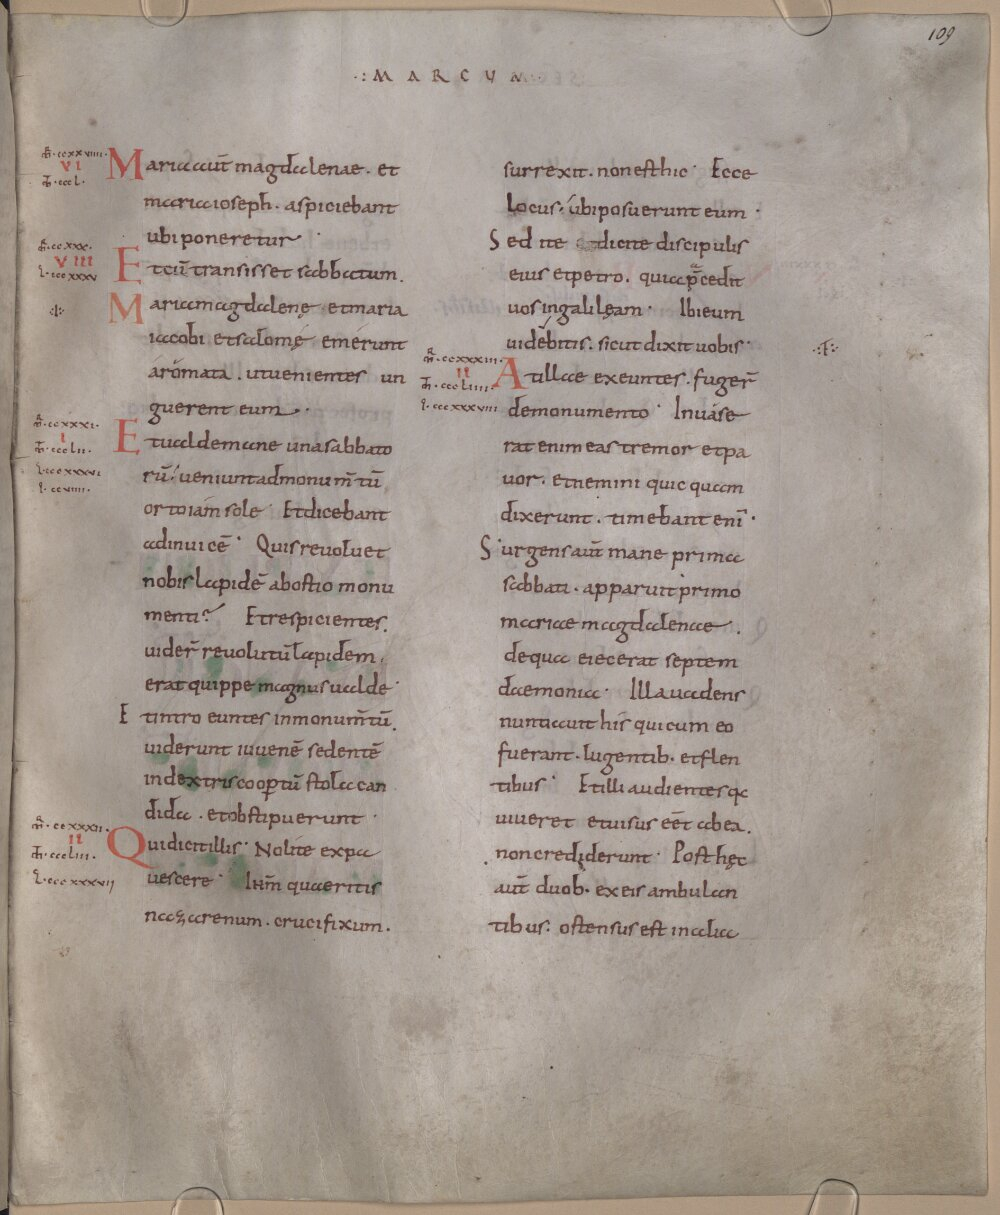 109
·:MARCUM·
m̄·ccxxviiii·
VI
Io·cccL·
Maria aut̄ magdalenae· et
maria ioseph· aspiciebant
ubi poneretur·
m̄·ccxxx·
VIII
L·cccxxxv
Et cū transisset sabbatum·
Maria magdalenę et maria
iacobi et salomę emerunt
aromata· ut venientes un
guerent eum·
m̄·ccxxxi·
I
Io·cccLii·
L·cccxxxvi
L·ccviiii·
Et ualde mane una sabbato
rū· ueniunt ad monum̄tū
orto iam sole· Et dicebant
ad inuicē· Quis reuoluet
nobis lapidē ab ostio monu
menti? Et respicientes
uider̄ reuolutū lapidem·
erat quippe magnus ualde·
Et intro euntes in monum̄tū·
uiderunt iuuenē sedentē
in dextris coop̄tū stola can
dida· et obstipuerunt·
m̄·ccxxxii·
II
Io·cccLiii·
L·cccxxxvii
Qui dicit illis· Nolite expa
uescere· Ihm̄ quaeritis
nazarenum· crucifixum·
surrexit· non est hic· Ecce
locus· ubi posuerunt eum·
Sed ite dicite discipulis
eius et petro· quia p̄cedit
uos in galilęam· Ibi eum
uidebitis· sicut dixit uobis·
m̄·ccxxxiii·
II
Io·cccLiiii·
L·cccxxxviii
At illae exeuntes· fuger̄
de monumento· Inuase
rat enim eas tremor et pa
uor· et nemini quicquam
dixerunt· timebant eni·
Surgens aut̄ mane prima
sabbati· apparuit primo
mariae magdalenae·
de qua eiecerat septem
daemonia· Illa uadens
nuntiauit his qui cum eo
fuerant· lugentib· et flen
tibus· Et illi audientes q
uiueret et uisus eēt ab ea·
non crediderunt· Post hęc
aut̄ duob· ex eis ambulan
tibus· ostensus est in alia